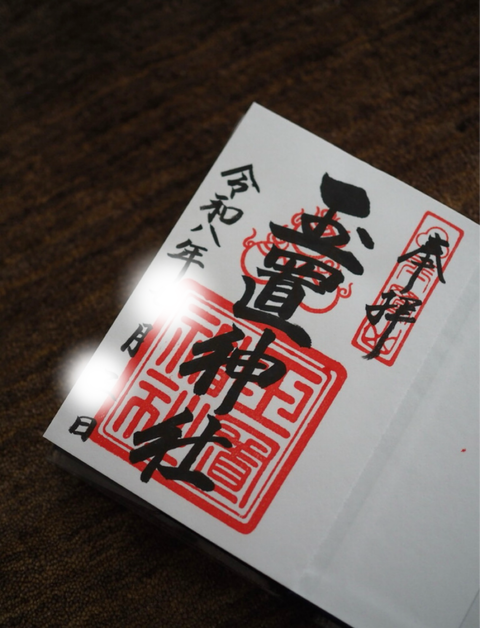 奉拝
玉置神社
令和八年 月 日
玉置神社